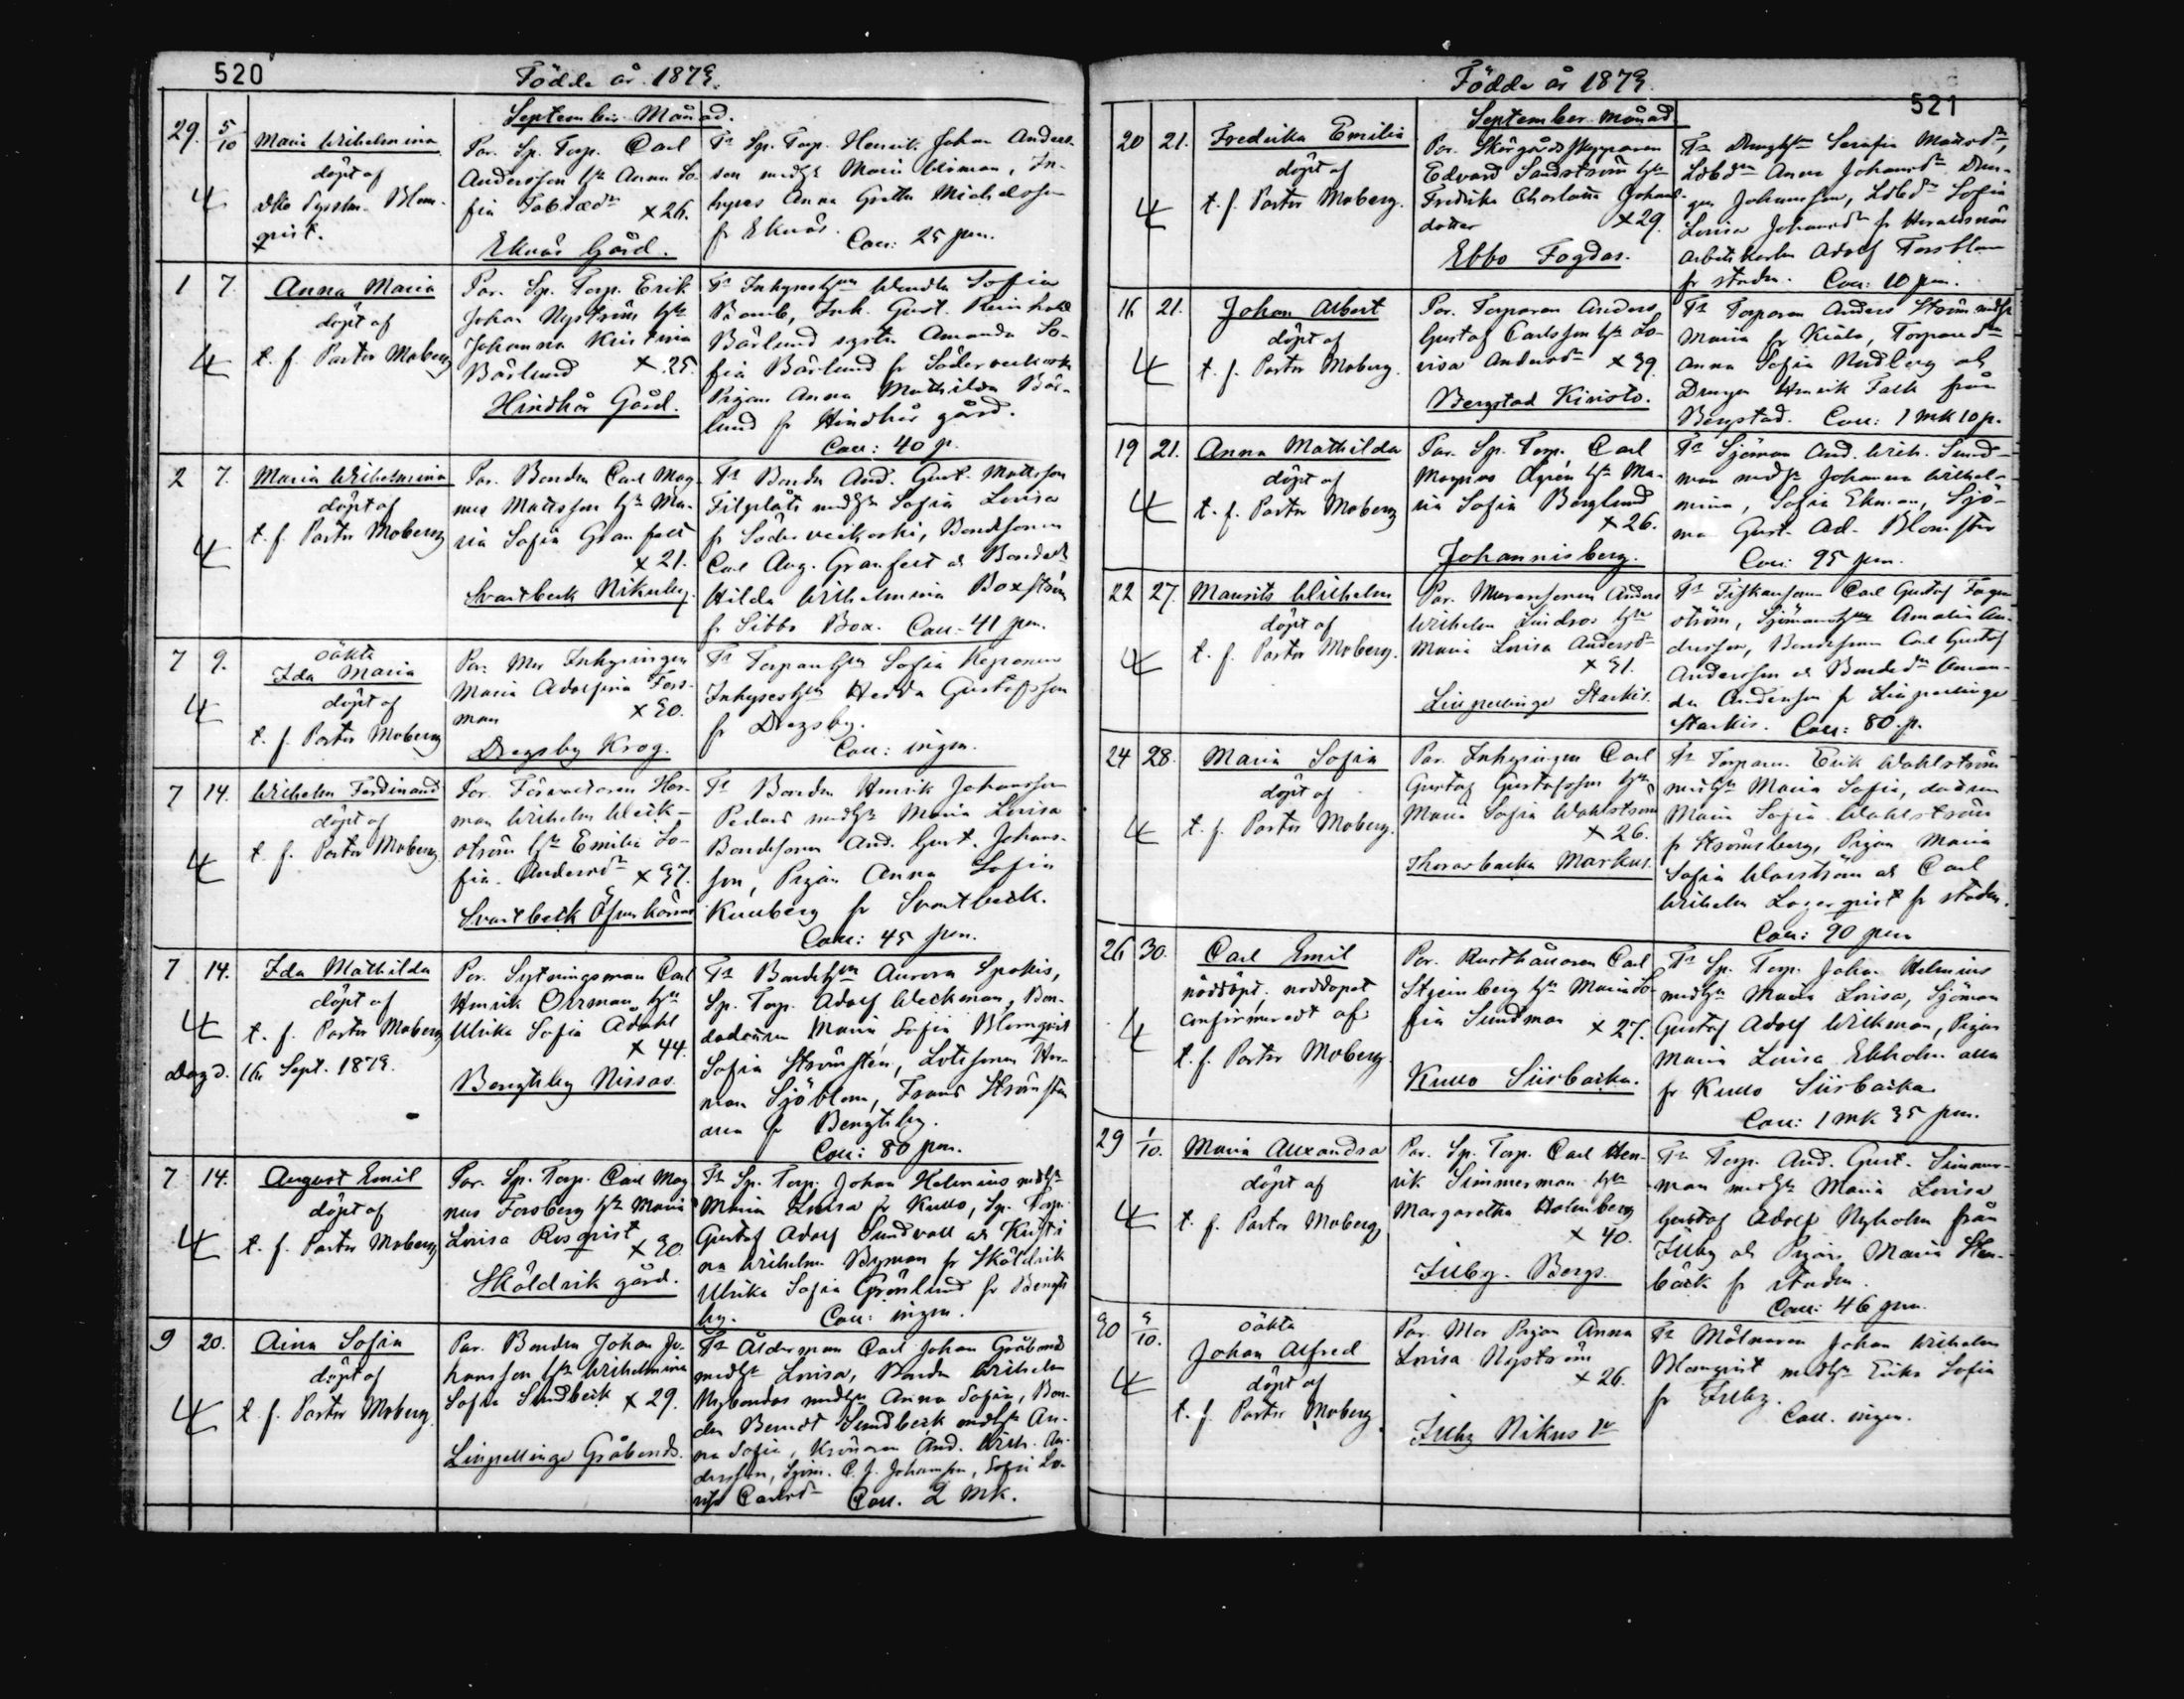 520
Födde år 1873.
September Månad.
29. 5/10 Maria Wilhelmina
döpt af
Blom-
qvist.
4
Par. Sp. Torp. Carl
Andersson hu Anna So-
fia
x 26.
Eknäs Gård.
Fr Sp. Torp. Henrik Johan Anders-
son medh Maria In-
hyses Anna Greta Michelsson
fr Eknäs. Coll: 25 pen.
1 7. Anna Maria
döpt af
t. f. Pastor Moberg
4
Par. Sp. Torp. Erik
Johan Nyström hu
Johanna Kristina
Bärlund x 25.
Hindhår Gård.
Fr Inhyseshun Wendla Sofia
Inh. Gust. Reinhold
Bärlund Amanda So-
fia Bärlund fr Söderveckoski
Pigan Anna Mathilda Bär-
lund fr Hindhår gård.
Coll: 40 p.
2 7. Maria Wilhelmina
döpt af
t. f. Pastor Moberg
4
Par. Bonden Carl Mag-
nus Mattsson hu Ma-
ria Sofia Granfelt
x 21.
Svartbeck Nikuby.
Fr Bonden And. Gust. Mattsson
medh Sofia Lovisa
fr Söderveckoski, Bondsonen
Carl Aug. Granfelt o Bonded
Hilda Wilhelmina Boxström
fr Sibbo Box. Coll: 41 pen.
7 9. oäkta
Ida Maria
döpt af
t. f. Pastor Moberg
4
Par: Mor Inhysingen
Maria Adolfina Fors-
man x 30.
Dregsby Krog.
Fr Torparehun Sofia
Inhyseshun Hedda Gustafsson
fr Dregsby.
Coll: ingen.
7 14. Wilhelm Ferdinand
döpt af
t. f. Pastor Moberg
4
Par. Förvaltaren Her-
man Wilhelm Weck-
ström hu Emilia So-
fia Andersdr x 37.
Svartbeck
Fr Bonden Henrik Johansson
medh Maria Lovisa
Bondsonen And. Gust. Johans-
son, Pigan Anna Sofia
fr Svartbeck.
Coll: 45 pen.
7 14. Ida Mathilda
döpt af
t. f. Pastor Moberg
4
16 Sept. 1873.
Par. Sytningsman Carl
Henrik hu
Ulrika Sofia Ådahl
x 44.
Bengtsby Nissas
Fr Bondehun Aurora
Sp. Torp. Adolf Weckman, Bon-
Maria Sofia Blomqvist
Sofia Strömsten, Her-
man Sjöblom, Frans Strömsten
alla fr Bengtsby.
Coll: 80 pen.
7 14. August Emil
döpt af
t. f. Pastor Moberg
4
Par. Sp. Torp. Carl Mag-
nus Forsberg hu Maria
Lovisa Rosqvist
x 30
Sköldvik gård.
Fr Sp. Torp. Johan Helenius medh
Maria Lovisa fr Kullo, Sp. Torp.
Gustaf Adolf Sundvall o Kristi-
na Wilhelm. Byman fr Sköldvik
Ulrika Sofia Grönlund fr Bengts-
by. Coll: ingen.
9 20. Aina Sofia
döpt af
t. f. Pastor Moberg
4
Par. Bonden Johan Jo-
hansson hu Wilhelmina
Sofia Sundbeck x 29.
Linpellinge Gråbends.
Fr Ålderman Carl Johan Gråbend
medh Lovisa, Bonden Wilhelm
Nybondas medh Anna Sofia, Bon-
den Berndt Sundbeck medh An-
na Sofia, And. Wilh. An-
dersson, Sjöm. C. J. Johansson, Sofia Lo-
visa Carlsdr Coll. 2 mk.
Födde år 1873.
521
September månad.
20 21. Fredrika Emilia
döpt af
t. f. Pastor Moberg.
4
Par. Skärgårds skepparen
Edvard Sandström hu
Fredrika Charlotta Johans-
dotter x 29.
Ebbo Fogdas.
Serafia
Anna Johansdr Dren-
gen Johansson, Sofia
Lovisa Johansdr fr
Arbetskarlen Adolf Forsblom
fr staden. Coll: 10 pen.
16 21. Johan Albert
döpt af
t. f. Pastor Moberg.
4
Par. Torparen Anders
Gustaf Carlsson hu Lo-
visa Andersdr x 39.
Bergstad Kinisto.
Fr Torparen Anders Ström medh
Maria fr Kiala, Torpared
Anna Sofia Nedberg o
Drengen Henrik Falk från
Bergstad. Coll: 1 mk 10 p.
19 21. Anna Mathilda
döpt af
t. f. Pastor Moberg
4
Par. Sp. Torp. Carl
Magnus hu Ma-
ria Sofia Berglund
x 26.
Johannisberg.
Fr Sjöman And. Wilh. Sund-
man medh Johanna Wilhel-
mina, Sofia Ekman, Sjö-
man Gust. Ad. Blomster
Coll: 95 pen.
22 27. Maurits Wilhelm
döpt af
t. f. Pastor Moberg.
4
Par. Anders
Wilhelm Lindroos hu
Maria Lovisa Andersdr
x 31.
Linpellinge Starkis.
Carl Gustaf Fager-
ström, Sjömanshun Amalia An-
dersson, Bondesonen Carl Gustaf
Andersson o Bonded Aman-
da Andersson fr Linpellinge
Starkis. Coll: 80 p.
24 28. Maria Sofia
döpt af
t. f. Pastor Moberg.
4
Par. Inhysingen Carl
Gustaf Gustafsson hu
Maria Sofia Wahlström
x 26.
Thorasbacka Markus.
Fr Torparen Erik Wahlström
medh Maria Sofia, dottren
Maria Sofia Wahlström
fr Strömsberg, Pigan Maria
Sofia o Carl
Wilhelm Lagerqvist fr staden.
Coll: 90 pen
26 30. Carl Emil
nöddöpt, noddopet
confirmeradt af
t. f. Pastor Moberg.
4
Par. Rusthållaren Carl
Steinberg hu Maria So-
fia Sundman x 27.
Kullo Siisbacka.
Fr Sp. Torp. Johan Helenius
medh Maria Lovisa, Sjöman
Gustaf Adolf Wilkman, Pigan
Maria Lovisa Ekholm alla
fr Kullo Siisbacka
Coll: 1 mk 35 pen.
29 1/10. Maria Alexandra
döpt af
t. f. Pastor Moberg
4
Par. Sp. Torp. Carl Hen-
rik Simmerman hu
Margaretha Holmberg
x 40.
Illby. Bergs.
Fr Torp. And. Gust. Simmer-
man medh Maria Lovisa
Gustaf Adolf Nyholm från
Illby o Pigan Maria Sten-
bäck fr staden.
Coll: 46 pen.
30 3/10. oäkta
Johan Alfred
döpt af
t. f. Pastor Moberg.
4
Par. Mor Pigan Anna
Lovisa Nyström
x 26.
Illby Nikus
Fr Målaren Johan Wilhelm
Blomqvist medh Erika Sofia
fr Illby.
Coll. ingen.